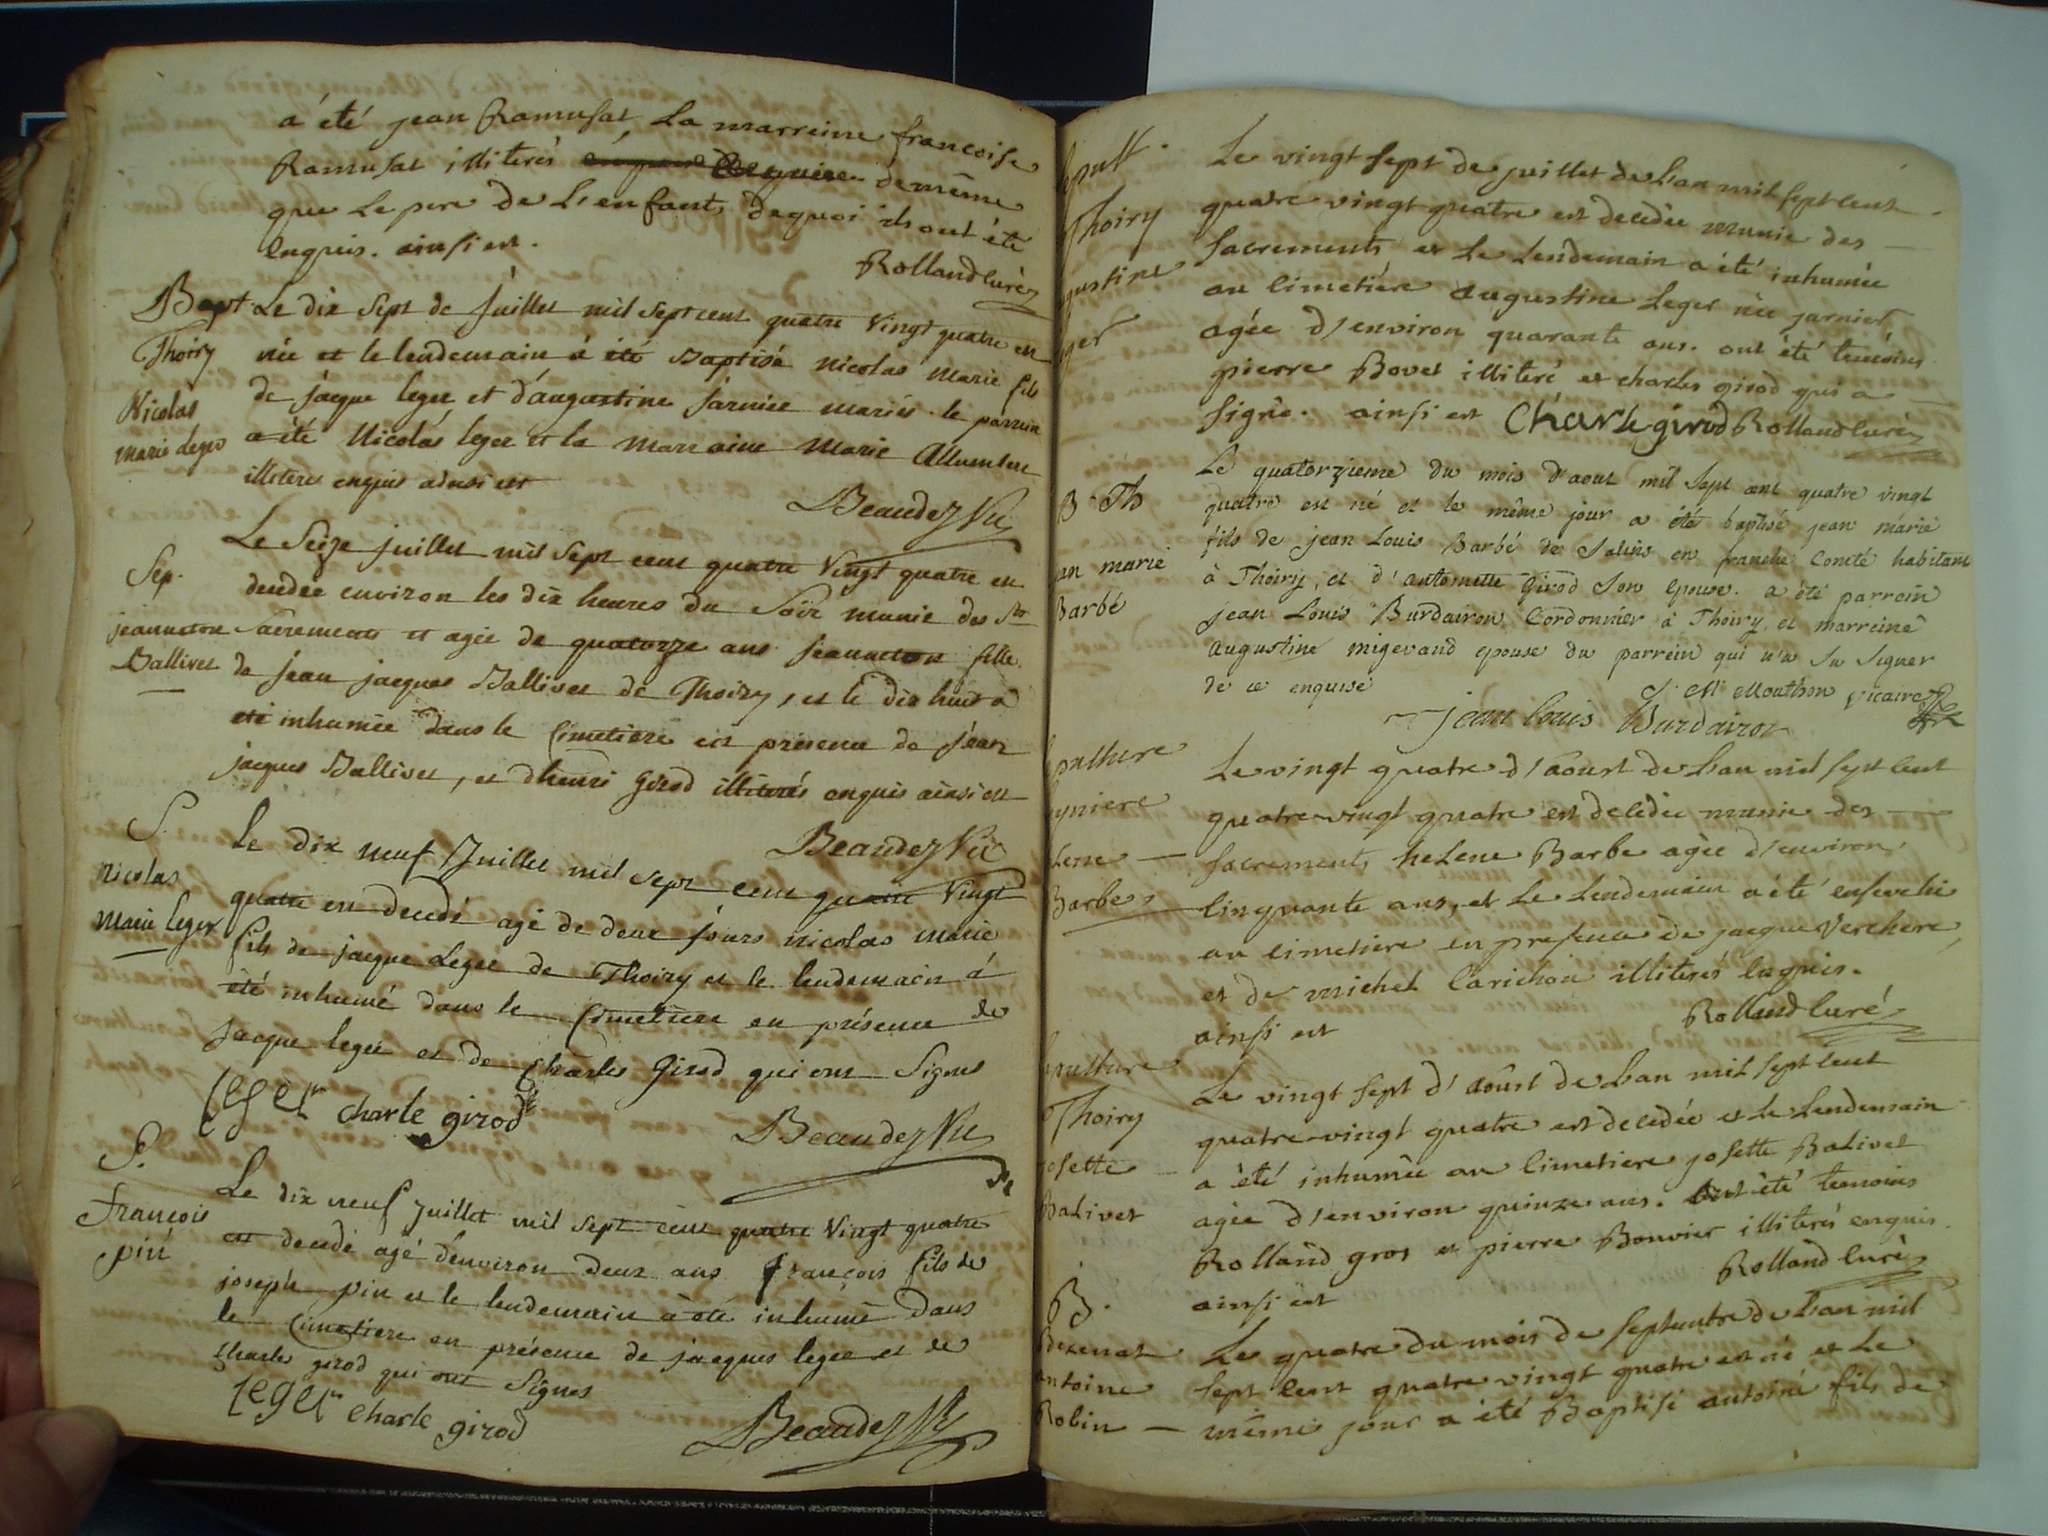 á été jean Ramusat, La marreine francoise
Ramusat illiterés de même
que Le pere de L'enfant, dequoi ils ont été
enquis. ainsi est.
Rolland curé
Bapt.
Thoiry
Nicolas
marie Leger
Le dix sept de Juillet mil sept cent quatre vingt quatre est
née et le lendemain á été Baptisé Nicolas Marie fils
de jacque leger et d'augustine jarnier mariés. le parrein
a été Nicolas leger et la Marraine Marie
illiteres enquis ainsi est
Beaudez Vic
Sep.
jeanneton
Ballivet
Le Seize juillet mil sept cent quatre Vingt quatre est
decedée environ les dix heures du Soir munie des Sts
Sacrements et agée de quatorze ans jeanneton fille
de jean jacques Ballivet de Thoiry, et le dix huit a
été inhumée dans le Cimetiere en présence de jean
jacques Ballivet, et d'henri Girod illiterés enquis ainsi est
Beaudez Vic
S.
Nicolas
Marie leger
Le dix neuf Juillet mil sept cent quatre Vingt
quatre est decedé agé de deux jours nicolas marie
fils de jacque Leger de Thoiry et le lendemain á
été inhumé dans le Cimetiere en présence de
Jacque leger et de Charles Girod qui ont Signes
leger charle girod
Beaudez Vic
S.
françois
pin
Le dix neuf Juillet mil sept cent quatre Vingt quatre
est decedé agé d'environ deux ans françois fils de
joseph pin et le lendemain á été inhumé dans
le Cimetiere en présence de jacques leger et de
Charles girod qui ont Signes
leger charle girod
Beaudez Vic
pult.
Thoiry
gustine
ger
Le vingt sept de juillet de L'an mil sept cent
quatre vingt quatre est decedée munie des
Sacrements, et Le Lendemain a été inhumée
au cimetiére augustine Leger née jarnier
agée d'environ quarante ans. ont été temoins
pierre Bovet illiteré et charles girod qui a
signé. ainsi est Charle girod Rolland curé
B Th
an marie
Barbé
Le quatorzieme du mois d'aout mil Sept cent quatre vingt
quatre est né et le même jour a été baptisé jean marie
fils de jean Louis Barbé de Salins en franche Comté habitant
à Thoiry, et d'antoinette Girod Son Epouse. a été parrein
jean Louis Burdairon Cordonnier à Thoiry, et marreine
augustine migevand epouse du parrein qui n'a Su Signer
de ce enquise
Mouthon vicaire
jean louis Burdairon
pulture
lene
Barbe
Le vingt quatre d'aoust de L'an mil sept cent
quatre-vingt quatre est decedée munie des
sacrements, helene Barbe agée d'environ
cinquante ans, et Le Lendemain a été ensevelie
au cimetiere en presence de jacque Verchere,
et de michel Carichon illiterés enquis.
ainsi est
Rolland curé
pulture
Thoiry
josette
Balivet
Le vingt sept d'aoust de L'an mil sept cent
quatre-vingt quatre est decedée et Le Lendemain
a été inhumée au cimetiere josette Balivet
agée d'environ quinze ans. ont été temoins
Rolland gros et pierre Bouvier illiterés enquis.
ainsi est
Rolland curé
B.
antoine
Robin
Le quatre du mois de septembre de L'an mil
sept cent quatre vingt quatre est né et Le
même jour a été Baptisé antoine fils de